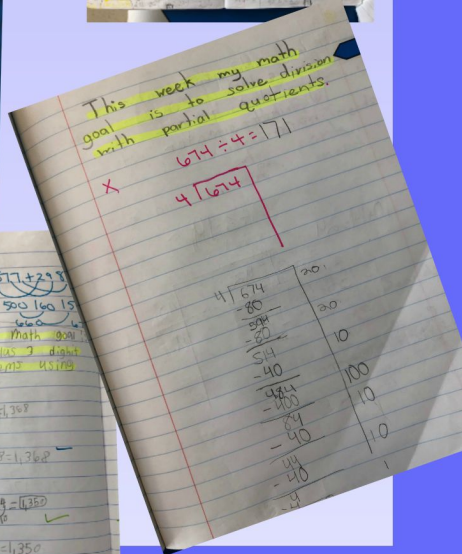 This week my math
goal is to solve division
with partial quotients.
674 ÷ 4 = 171
X
4 674
4 674 20
-80
594 20
-80
514 10
-40
484 100
-400
84 10
-40
44 10
-40
4 1
-4
577+298
500 160 15
660
math goal
3 digit
using
=1,368
=1,350
=1,350